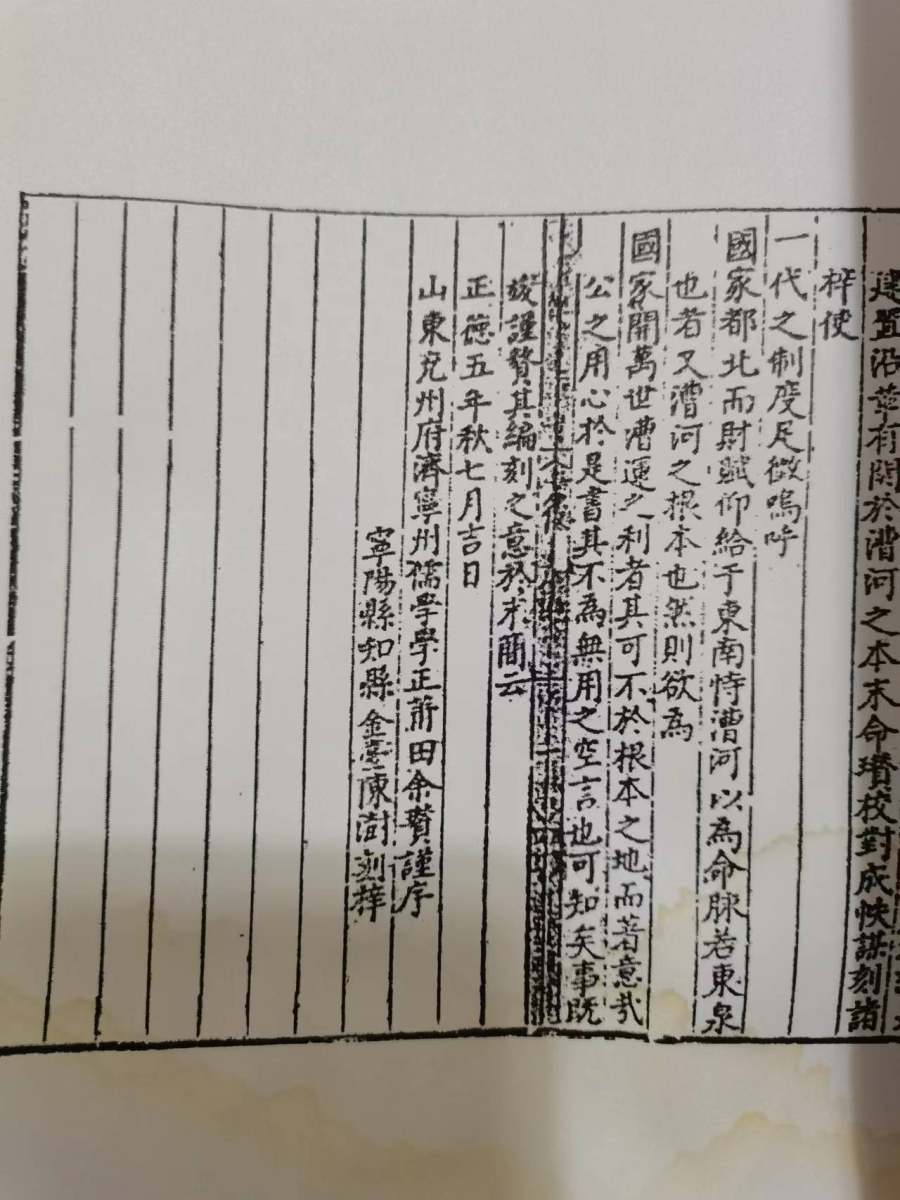 建置沿革有關於漕河之本末命瓚校對成帙謀刻諸
梓使
一代之制度足徵嗚呼
國家都北而財賦仰給于東南恃漕河以為命脉若東泉
也者又漕河之根本也然則欲為
國家開萬世漕運之利者其可不於根本之地而著意哉
公之用心於是書其不為無用之空言也可知矣事既
竣謹贅其編刻之意於末簡云
正德五年秋七月吉日
山東兖州府濟寧州儒學學正莆田余瓚謹序
寧陽縣知縣金臺陳澍刻梓